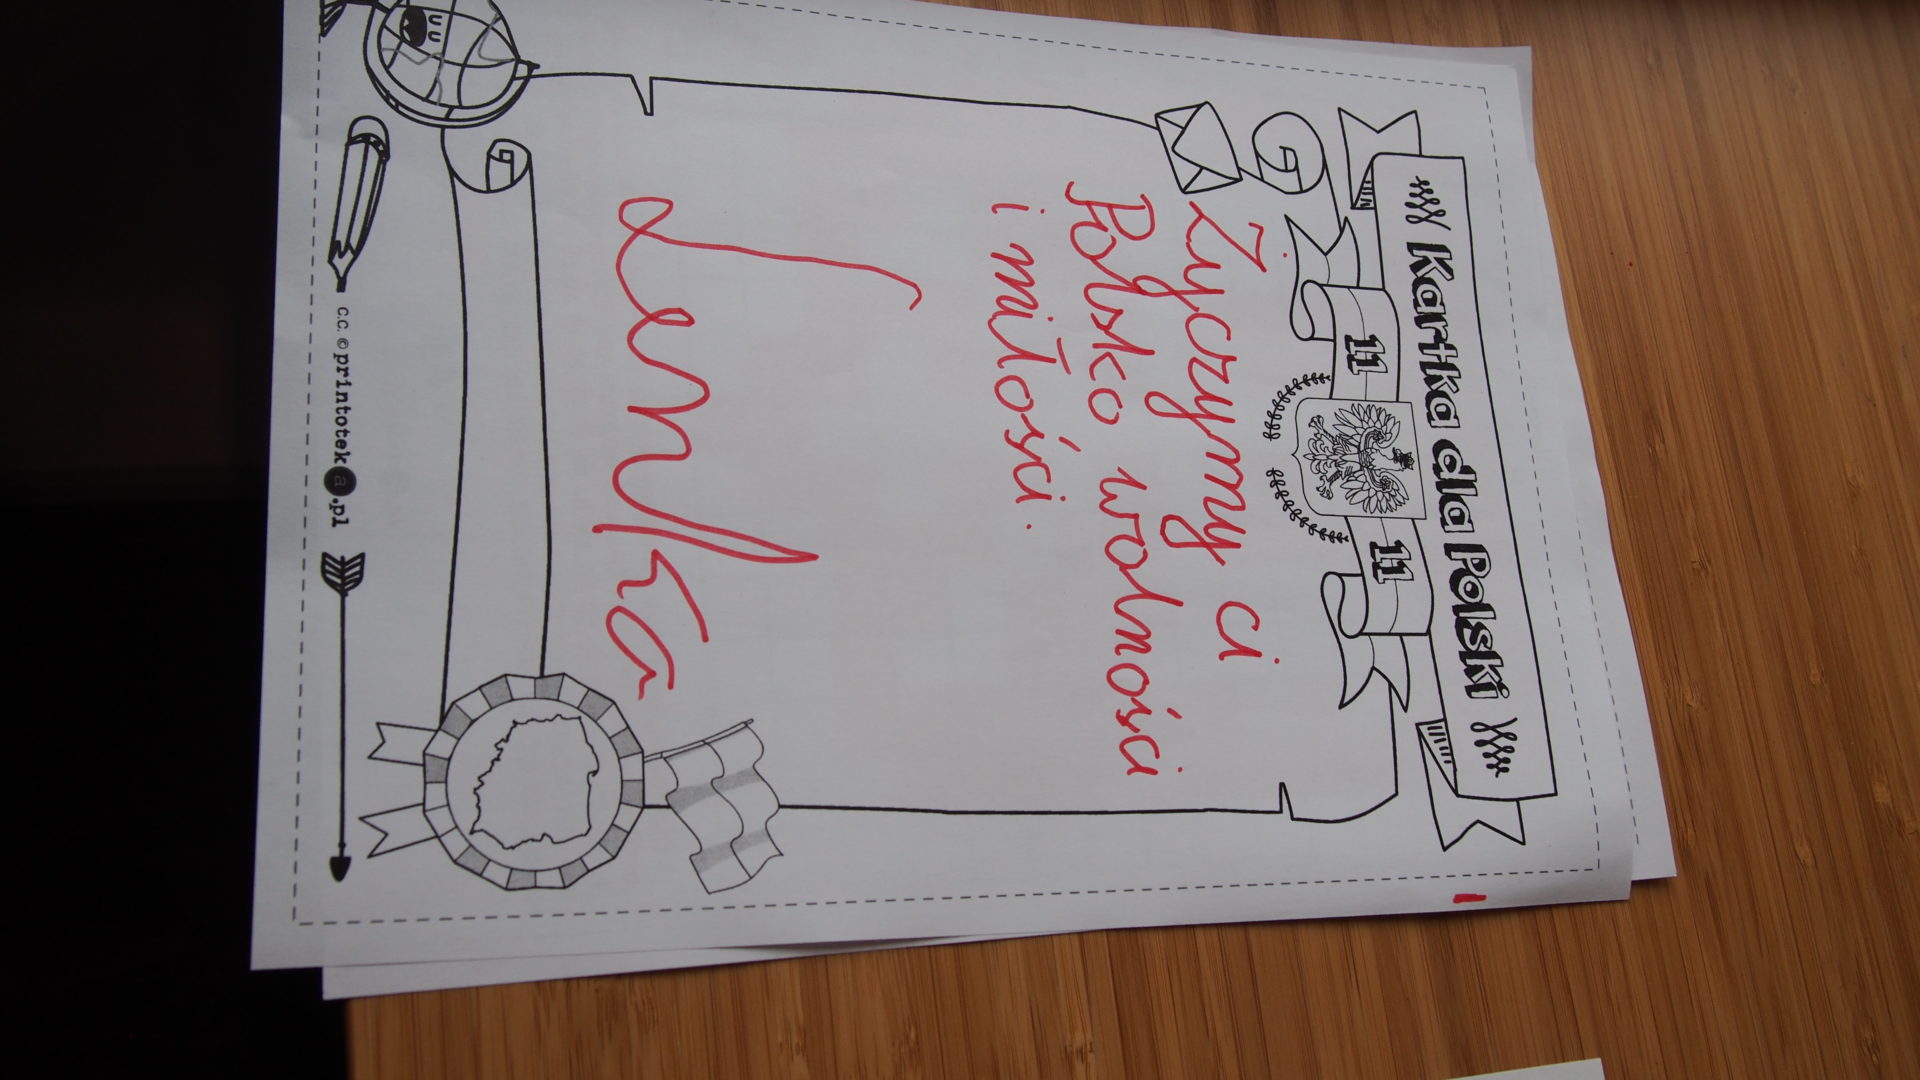 Kartka dla Polski
11 11
Życzymy ci
Polsko wolności
i miłości.
Lenka
c.c. © printoteka.pl